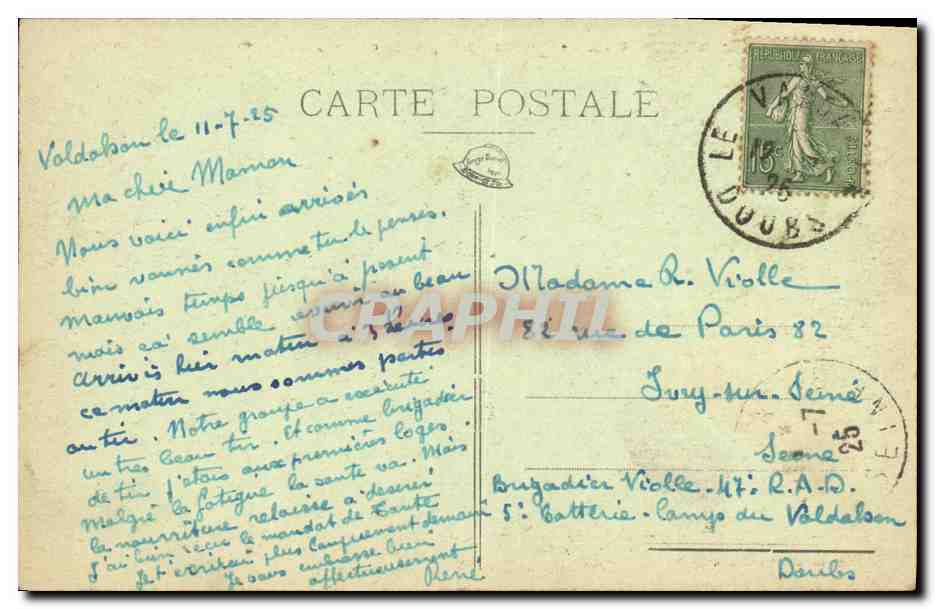 CARTE POSTALE
Valdahon le 11-7-25
Ma chère Maman
Nous voici enfin arrivés
bien vannés comme tu le penses.
Mauvais temps jusqu'à présent
mais ça semble venir au beau
Arrivés hier matin à 3 heures
ce matin nous sommes partis
au tir. Notre groupe a exécuté
un très beau tir. Et comme brigadier
de tir j'étais aux premières loges.
Malgré la fatigue la santé va. Mais
la nourriture relaisse à désirer
J'ai bien reçu le mandat de Tante
Je t'écrirai plus longuement demain
Je vous embrasse bien
affectueusement.
René
REPUBLIQUE FRANÇAISE
15c
POSTES
LE VA
12
25
DOUBS
Madame R. Violle
82 rue de Paris 82
Ivry-sur-Seine
Seine
-7
25
Brigadier Violle - 47e R.A.D.
5e Batterie - Camps du Valdahon
Doubs
CRAPHIL